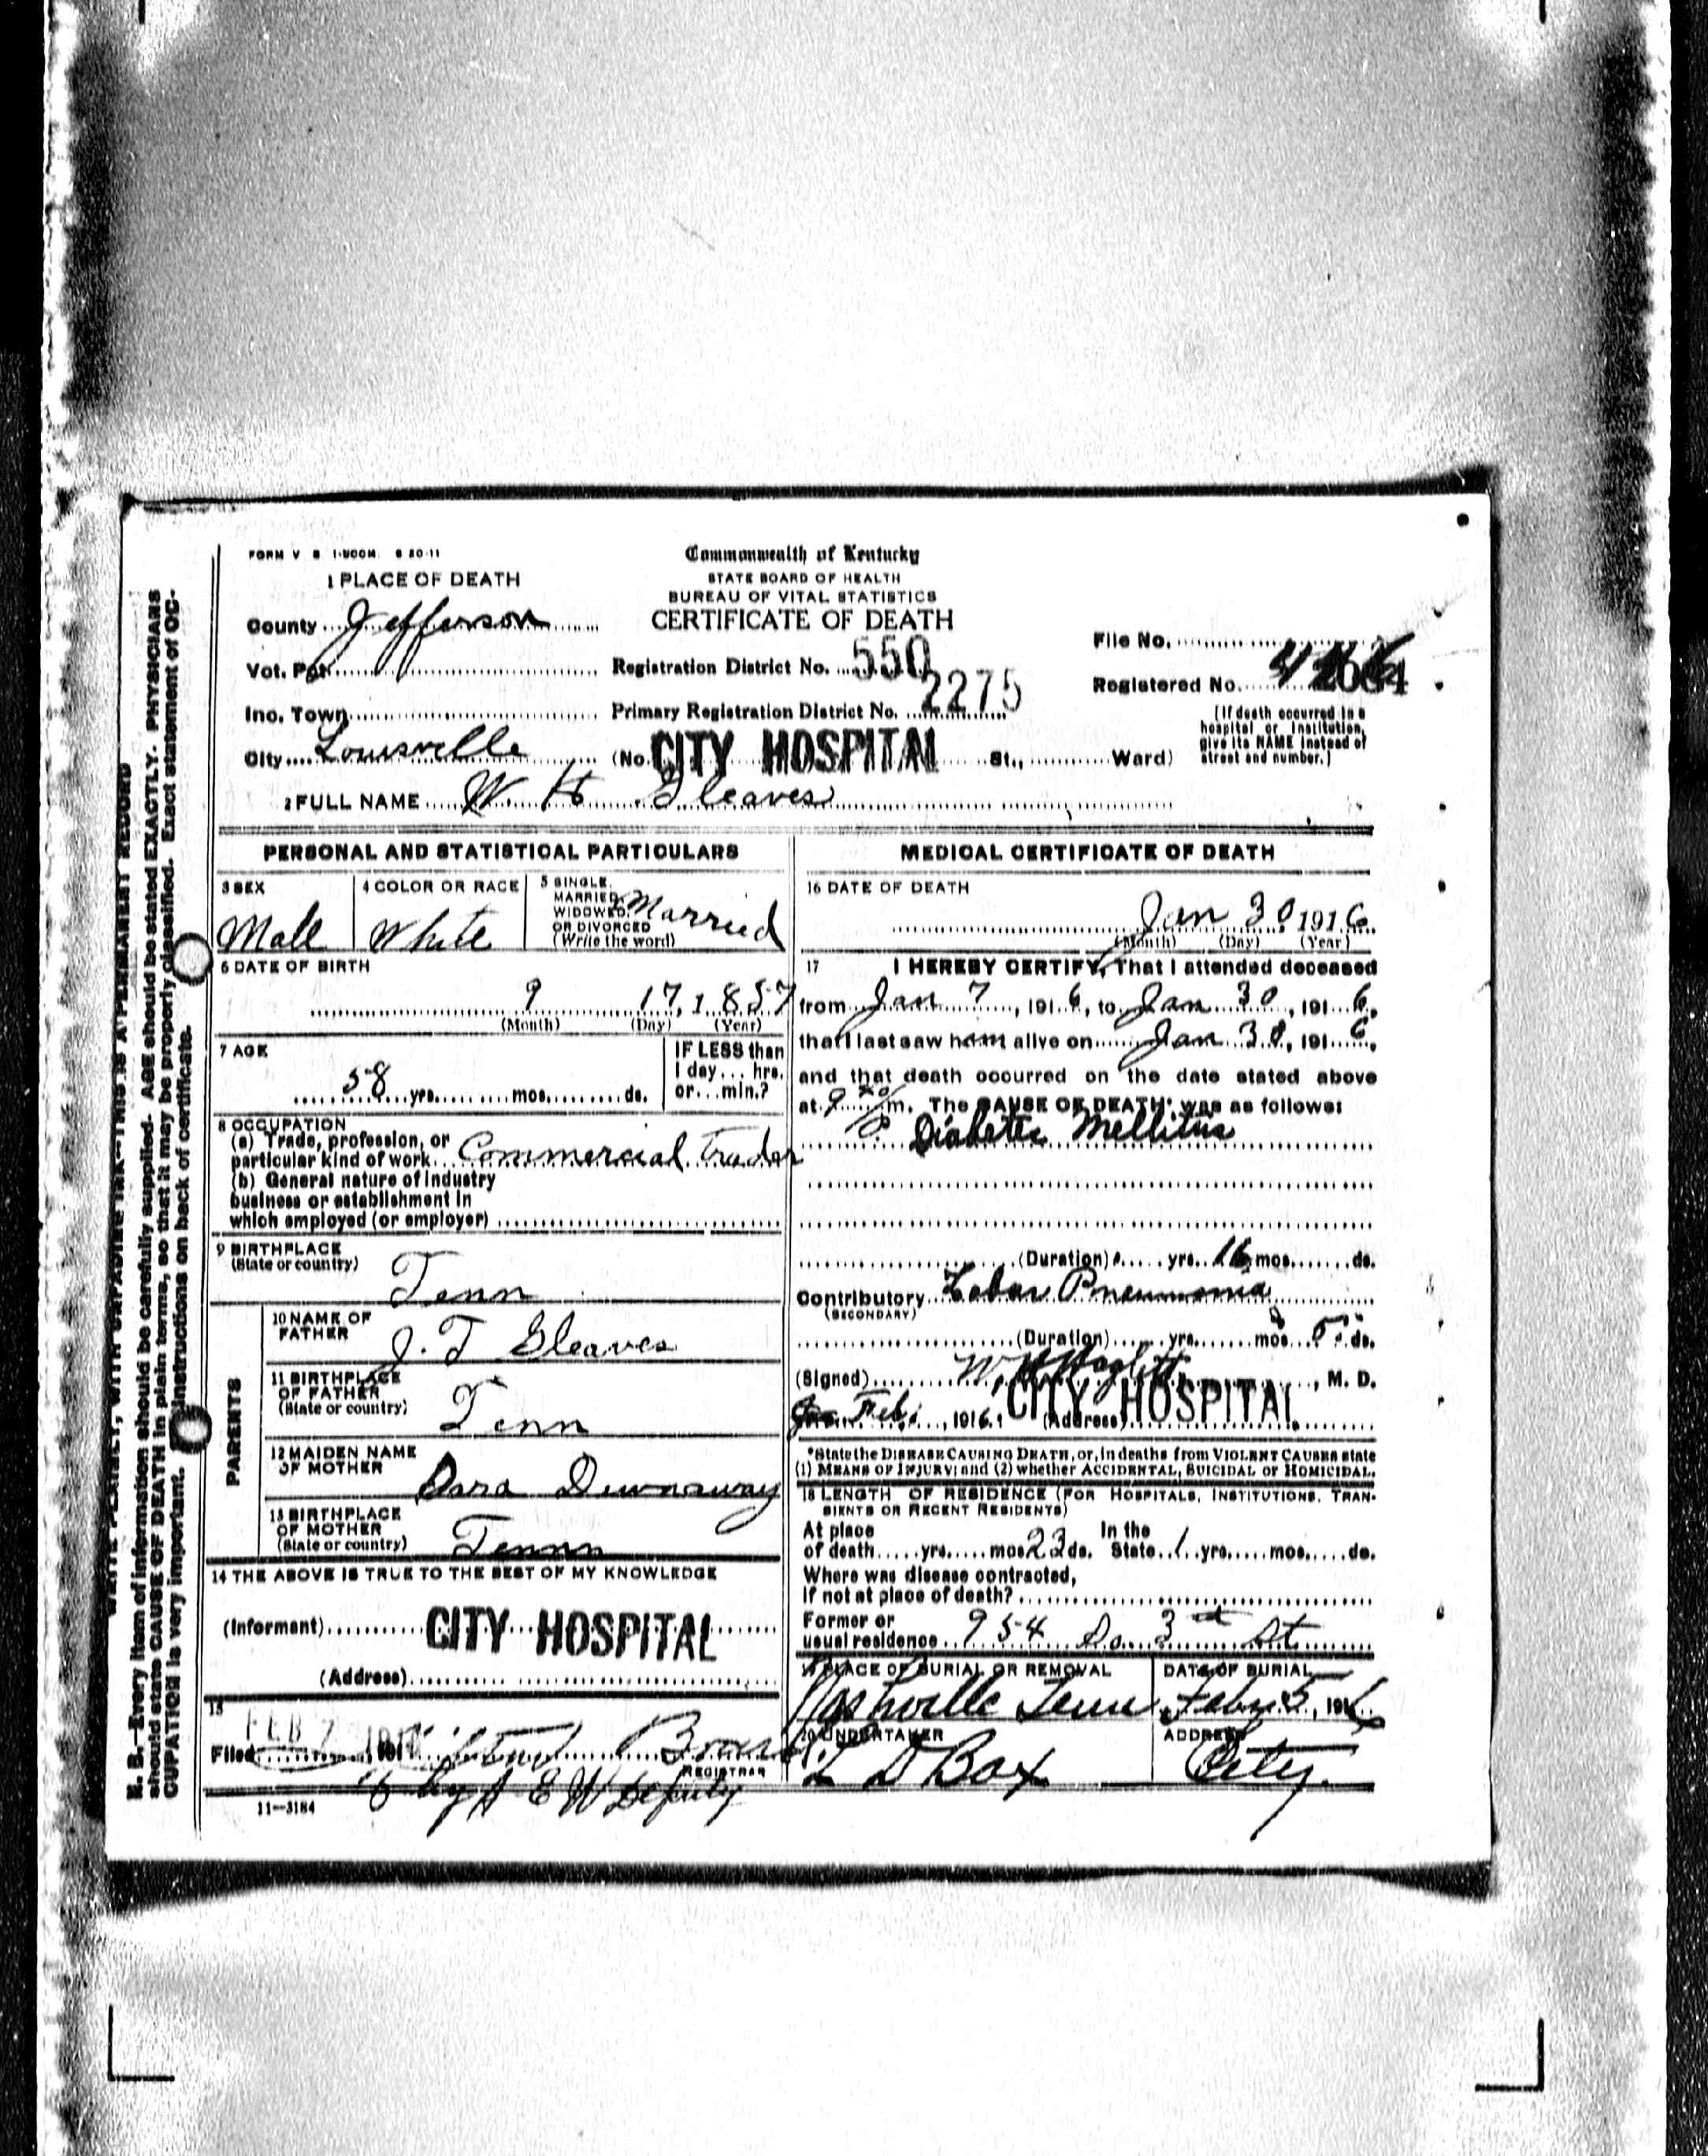 FORM V. S. 1-
Commonwealth of Kentucky
1 PLACE OF DEATH
STATE BOARD OF HEALTH
BUREAU OF VITAL STATISTICS
CERTIFICATE OF DEATH
County Jefferson
File No.
Vot. Pct.
Registration District No. 550
Registered No.
Inc. Town
Primary Registration District No. 2275
(If death occurred in a hospital or institution, give its NAME instead of street and number.)
City Louisville (No. CITY HOSPITAL St., Ward)
2 FULL NAME W. H. Gleaves
PERSONAL AND STATISTICAL PARTICULARS
3 SEX
Male
4 COLOR OR RACE
White
5 SINGLE, MARRIED, WIDOWED, OR DIVORCED (Write the word)
Married
6 DATE OF BIRTH
9 17, 1857
(Month) (Day) (Year)
7 AGE
58 yrs. mos. ds.
IF LESS than 1 day... hrs. or... min.?
8 OCCUPATION
(a) Trade, profession, or
particular kind of work Commercial Trader
(b) General nature of industry
business or establishment in
which employed (or employer)
9 BIRTHPLACE
(State or country)
Tenn
PARENTS
10 NAME OF FATHER
J. T Gleaves
11 BIRTHPLACE OF FATHER (State or country)
Tenn
12 MAIDEN NAME OF MOTHER
13 BIRTHPLACE OF MOTHER (State or country)
Tenn
14 THE ABOVE IS TRUE TO THE BEST OF MY KNOWLEDGE
(Informant) CITY HOSPITAL
(Address)
15
Filed FEB 7
REGISTRAR
by A E W Deputy
11-3184
MEDICAL CERTIFICATE OF DEATH
16 DATE OF DEATH
Jan 30, 1916
(Month) (Day) (Year)
17 I HEREBY CERTIFY, That I attended deceased
from Jan 7, 1916, to Jan 30, 1916,
that I last saw him alive on Jan 30, 1916,
and that death occurred on the date stated above
at 9 m. The CAUSE OF DEATH* was as follows:
Diabetes Mellitus
(Duration) yrs. 16 mos. ds.
Contributory Lobar Pneumonia
(SECONDARY)
(Duration) yrs. mos. 5 ds.
(Signed) M. D.
Feb. 1916. (Address) CITY HOSPITAL
*State the DISEASE CAUSING DEATH, or, in deaths from VIOLENT CAUSES state
(1) MEANS OF INJURY; and (2) whether ACCIDENTAL, SUICIDAL or HOMICIDAL.
18 LENGTH OF RESIDENCE (FOR HOSPITALS, INSTITUTIONS, TRAN-
SIENTS OR RECENT RESIDENTS)
At place of death yrs. mos. 23 ds. In the State 1 yrs. mos. ds.
Where was disease contracted,
If not at place of death?
Former or
usual residence 954 So. 3rd St
19 PLACE OF BURIAL OR REMOVAL
Nashville Tenn
DATE OF BURIAL
1916
20 UNDERTAKER
L D Bax
ADDRESS
City.
N. B.—Every item of information should be carefully supplied. AGE should be stated EXACTLY. PHYSICIANS
should state CAUSE OF DEATH in plain terms, so that it may be properly classified. Exact statement of OC-
CUPATION is very important. instructions on back of certificate.